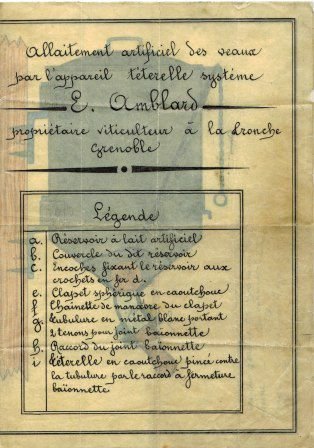 Allaitement artificiel des veaux
par l'appareil téterelle système
E. Amblard
propriétaire viticulteur à la Tronche
Grenoble
Légende
a. Réservoir à lait artificiel
b. Couvercle du dit réservoir
c. Encoches fixant le réservoir aux
crochets en fer d.
e. Clapet sphérique en caoutchouc
f. Chaînette de manœuvre du clapet
g. tubulure en métal blanc portant
2 tenons pour joint baïonnette
h. Raccord du joint baïonnette
i téterelle en caoutchouc pincé contre
la tubulure par le raccord à fermeture
baïonnette